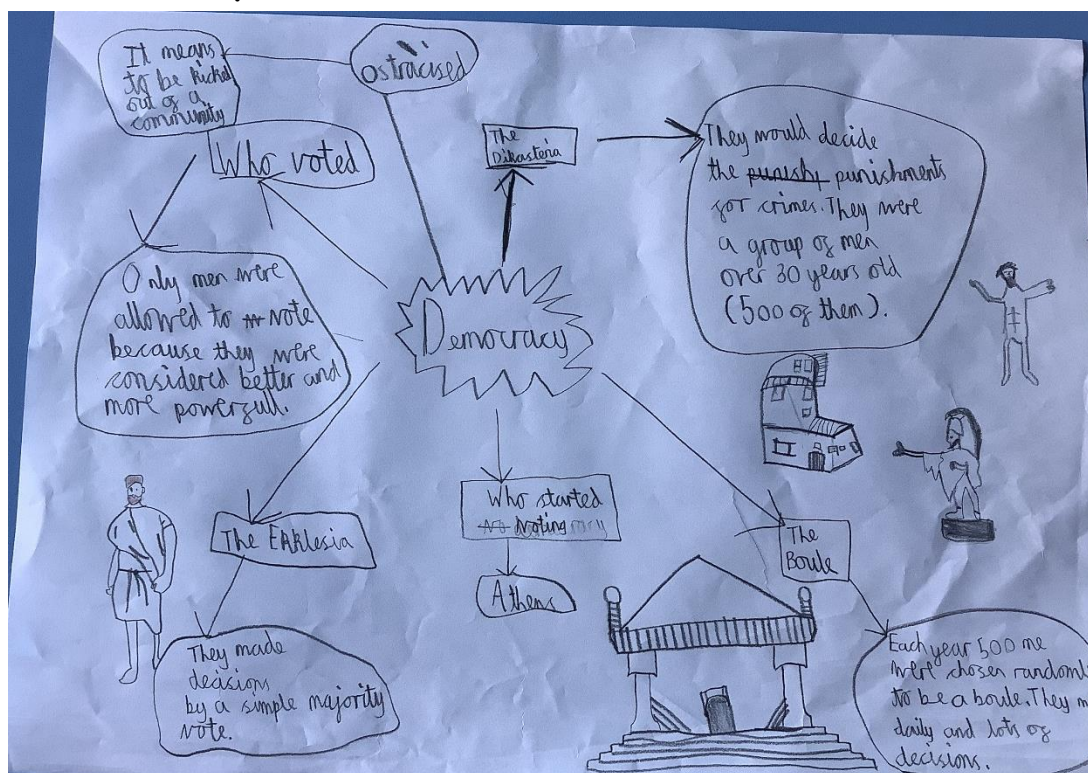 It means
to be kicked
out of a
community
ostracised
Who voted
The
Dikasteria
They would decide
the punish punishments
for crimes. They were
a group of men
over 30 years old
(500 of them).
Only men were
allowed to vote
because they were
considered better and
more powerfull.
Democracy
The Ekklesia
They made
decisions
by a simple majority
vote.
Who started
voting
Athens
The
Boule
Each year 500 me
were chosen randoml
to be a boule. They m
daily and lots of
decisions.